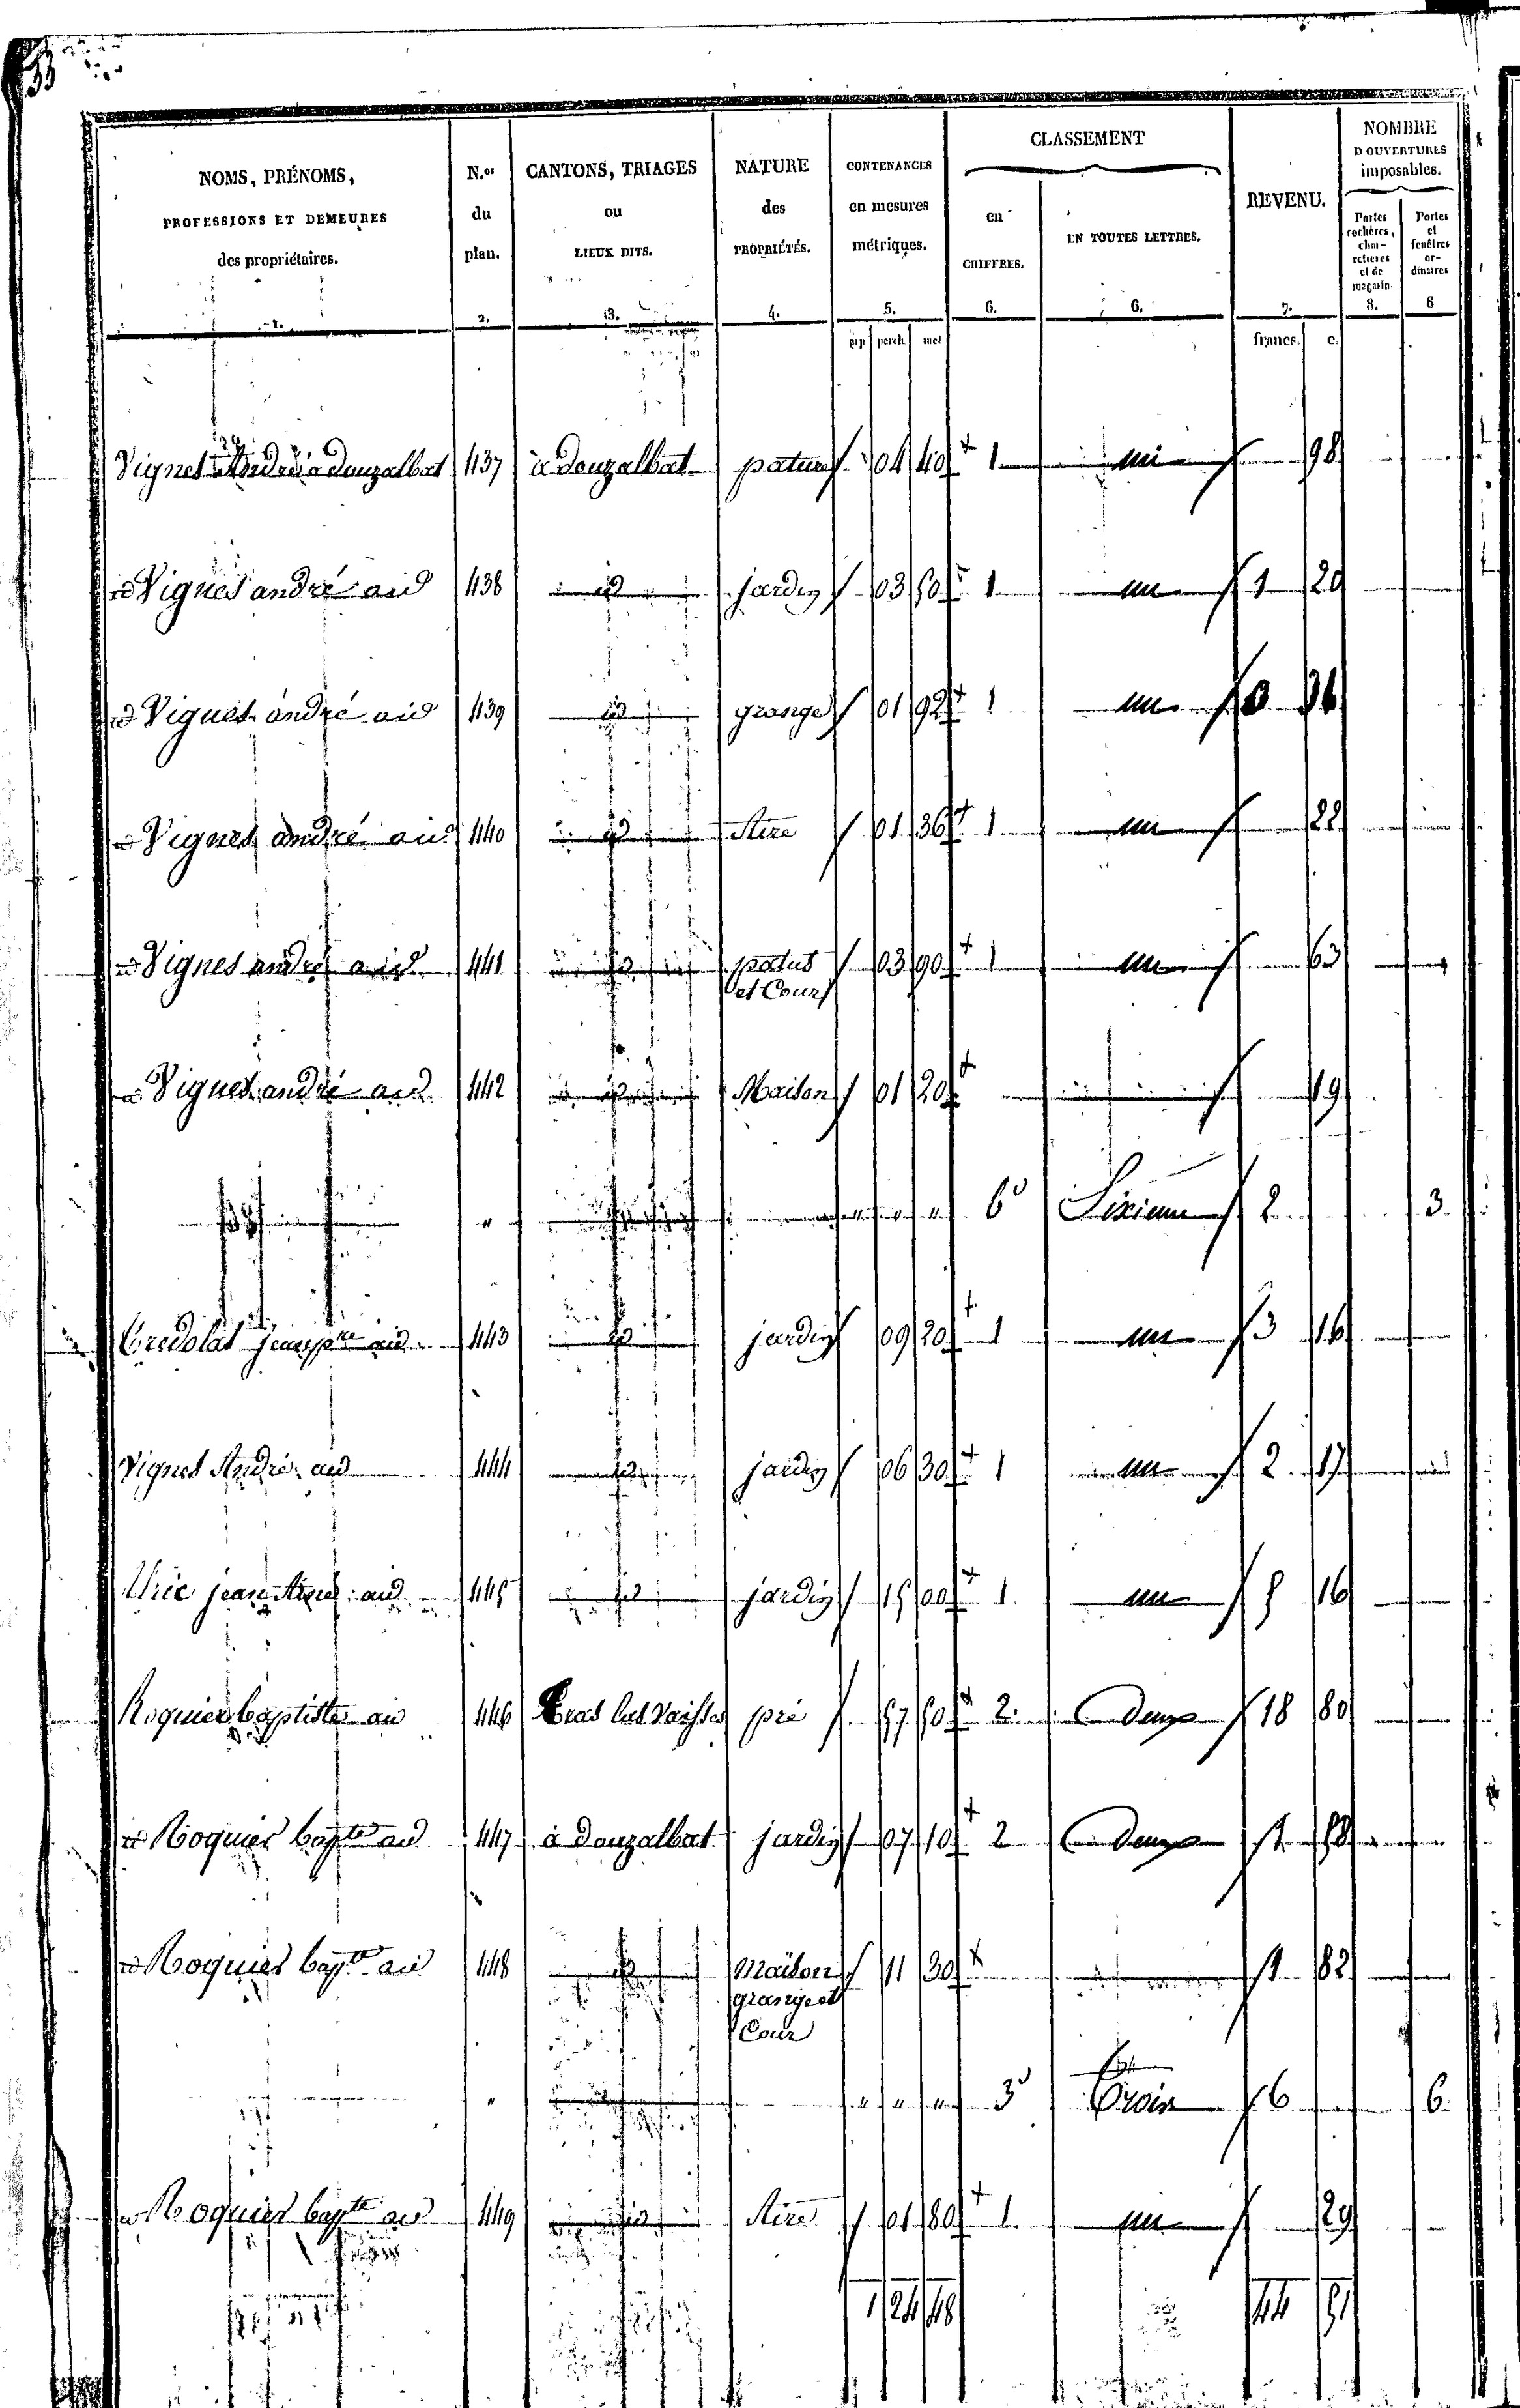 33
NOMS, PRÉNOMS, PROFESSIONS ET DEMEURES des propriétaires. 1.
N.os du plan. 2.
CANTONS, TRIAGES ou LIEUX DITS. 3.
NATURE des PROPRIÉTÉS. 4.
CONTENANCES en mesures métriques. 5.
CLASSEMENT
en CHIFFRES. 6.
EN TOUTES LETTRES. 6.
REVENU. 7.
NOMBRE D'OUVERTURES imposables.
Portes cochères, charretières et de magasin. 8.
Portes et fenêtres ordinaires 8
arp perch. met francs. c.
Vignes André à douzalbat 437 à douzalbat pature 04 40 1 un 98
id Vignes andré aid 438 id jardin 03 50 1 un 1 20
id Vignes andré aid 439 id grange 01 92 1 un 0 36
id Vignes andré aid 440 id Aire 01 36 1 un 22
id Vignes andré aid 441 id patus et Cour 03 90 1 un 63
id Vignes andré aid 442 id Maison 01 20 19
" " " " 6e Sixieme 2 3.
Credolat jean pre aid 443 id jardin 09 20 1 un 3 16
Vignes André aid 444 id jardin 06 30 1 un 2 17
jean aid 445 id jardin 15 00 1 un 5 16
Roquier baptiste aid 446 pré 57 50 2. deux 18 80
id Roquier bapte aid 447 à douzalbat jardin 07 10 2 deux 1
id Roquier bapte aid 448 id Maison grange et Cour 11 30 1 82
" " " " 3e Trois 6 6.
id Roquier bapte aid 449 id Aire 01 80 1. un 29
1 24 48 44 51